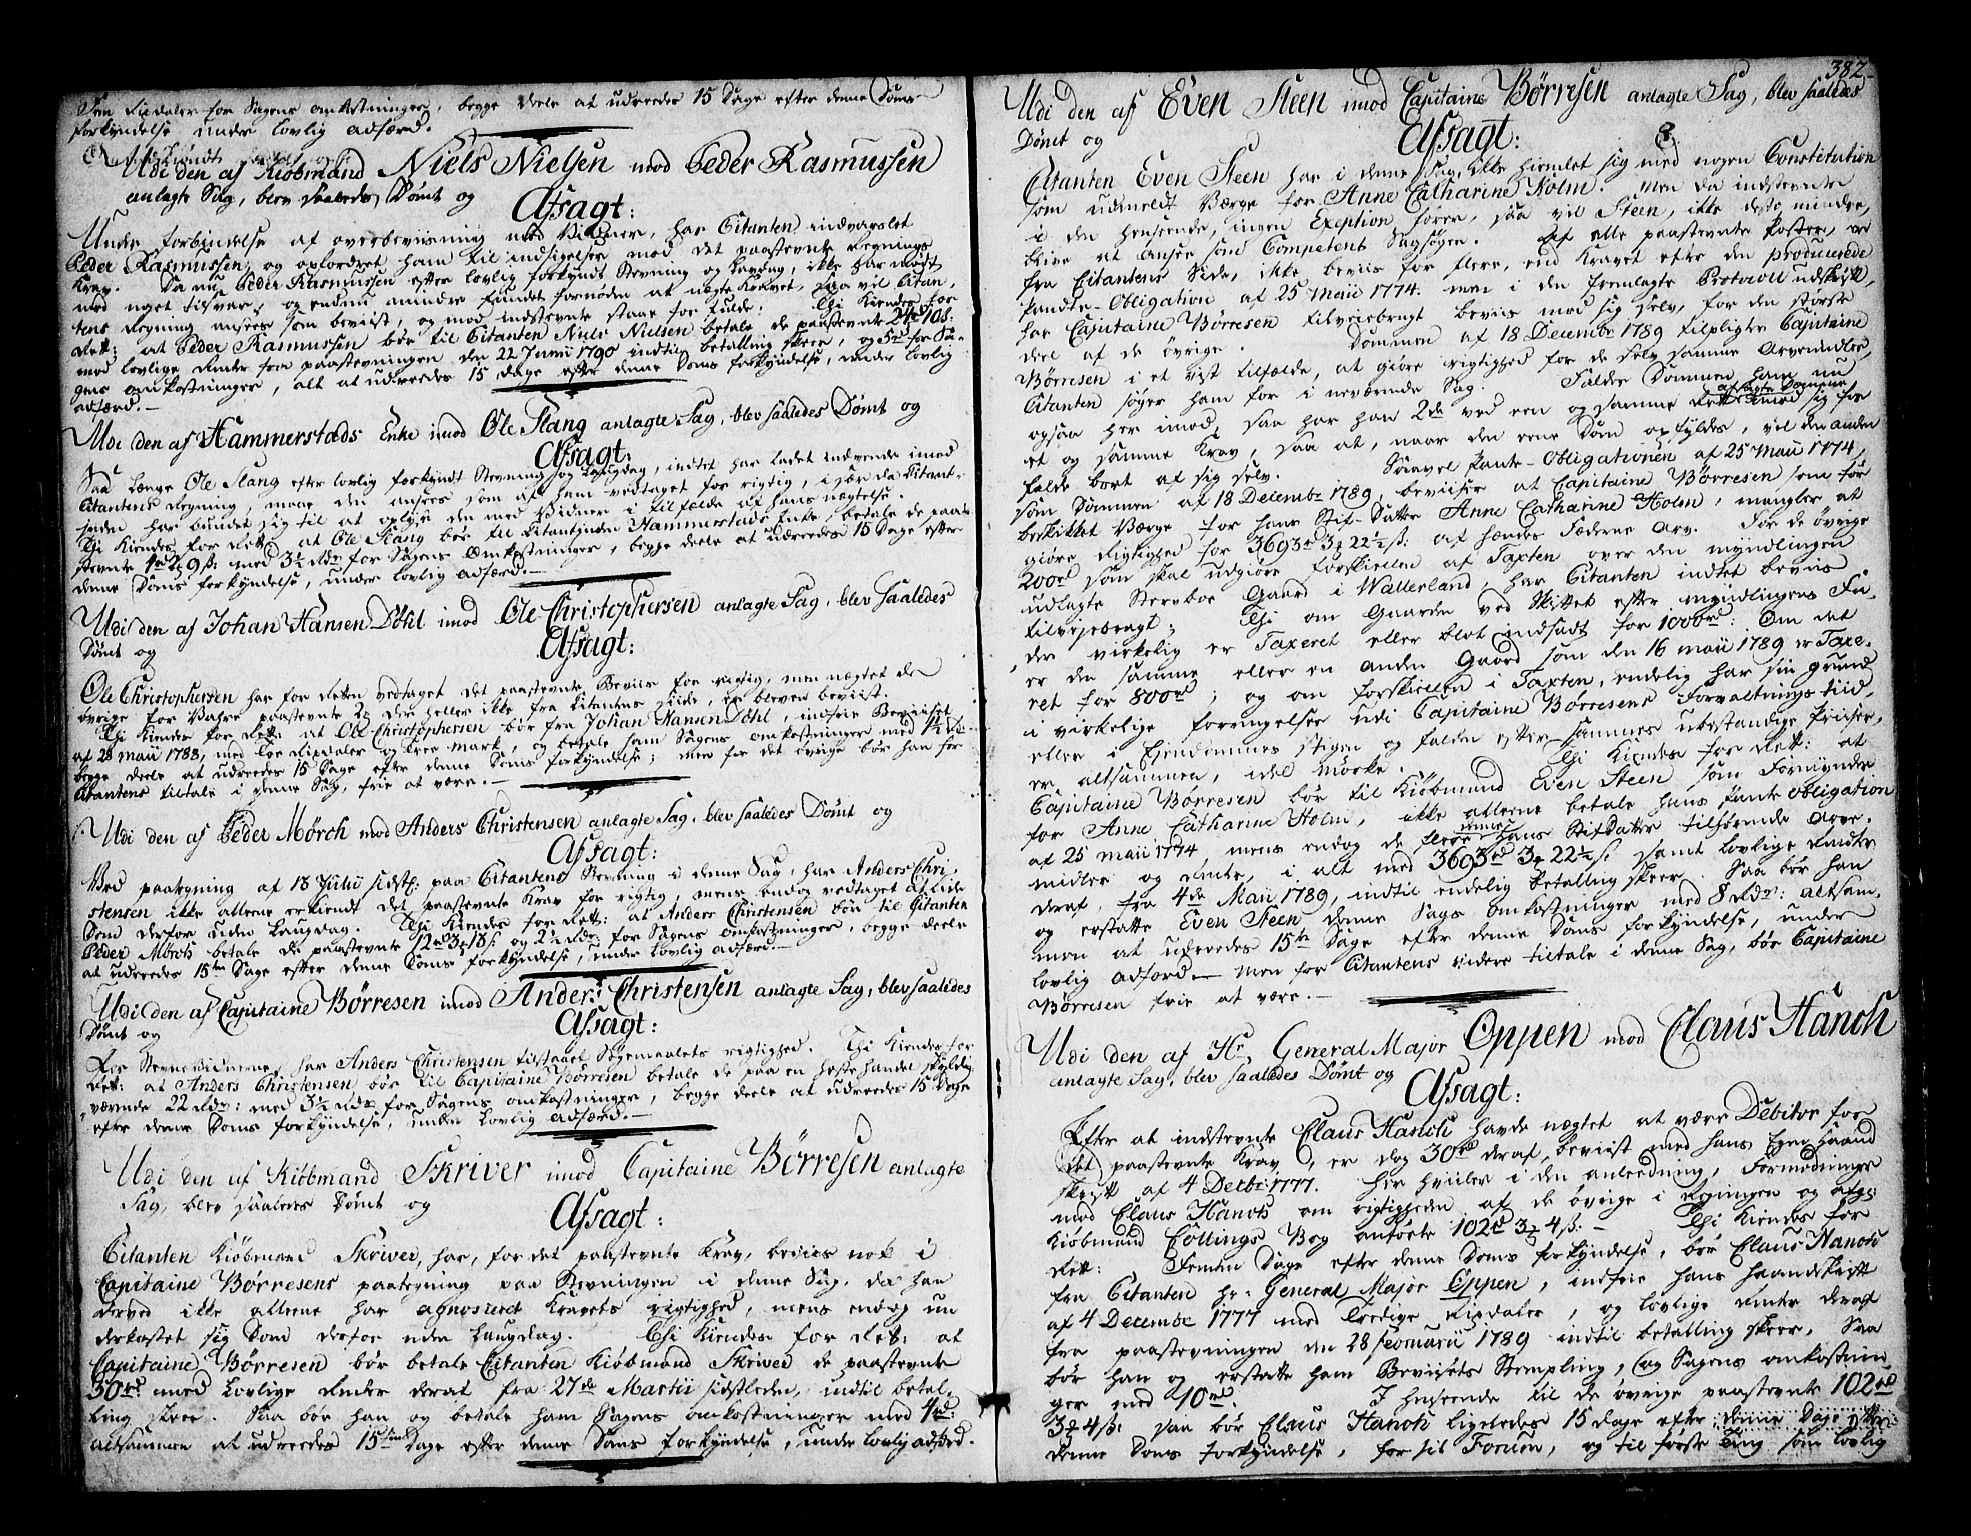 Fem Rixdaler for Sagens omkostninger, begge deele at udreedes 15 Dage efter denne Doms
forkyndelse under lovlig adfærd.
Udi den af Kiöbmand Niels Nielsen mod Peder Rasmussen
anlagte Sag, blev saaledes Dömt og
Afsagt:
Under forbindelse af overbeviisning med Vidner, har Citanten indvarslet
Peder Rasmussen, og opfordret ham til indsigelse mod det paastevnte Regnings
Krav. Da nu Peder Rasmussen efter lovlig forkyndt Stevning og Laudag, ikke har mödt
med noget tilsvar, og endnu mindre fundet fornöden at nægte Kravet, saa vil Citan-
tens Regning ansees som beviist, og mod indstevnte staae for fulde: Thi Kiendes for
Ret: at Peder Rasmussen bör til Citanten Niels Nielsen betale de paastevnte 24rd 10s:
med lovlige Renter fra paastevningen den 22 Junii 1790 indtil betalling skeer, og 3rd for Sa-
gens omkostninger, alt at udreedes 15 Dage efter denne Doms forkyndelse, under lovlig
adfærd.-
Udi den af Hammerstads Enke imod Ole Stang anlagte Sag, blev saaledes Dömt og
Afsagt:
Saa længe Ole Stang efter lovlig forkyndt Stevning og Laugdag, indtet har ladet indvende imod
Citantens Regning, maae den ansees som af ham vedtaget for rigtig, især da Citant-
inden har bundet sig til at oplyse den med Vidner i tilfælde af hans nægtelse.
Thi Kiendes for Ret: at Ole Stang bör til Citantinden Hammerstads Enke, betale de paa-
stevnte 1rd 2 9ß: med 3½ Rdr for Sagens Omkostninger, begge deele at udreedes 15 Dage efter
denne Doms forkyndelse, under lovlig adfærd.-
Udi den af Johan Hansen Döhl imod Ole Christophersen anlagte Sag, blev saaledes
Dömt og
Afsagt:
Ole Christophersen har for Retten vedtaget det paastevnte Beviis for rigtig, men nægtet de
övrige for Vahre paastevnte 2 der heller ikke fra Citantens Siide, er bleven beviist.
Thi Kiendes for Ret: at Ole Christophersen bör fra Johan Hansen Döhl, indfrie Beviiset
af 28 maii 1788, med Tre Rixdaler og tree mark, og betale ham Sagens omkostninger med 1½ Rdr
begge deele at udreedes 15 Dage efter denne Doms forkyndelse; men for det övrige bör han for
Citantens tiltale i denne Sag, frie at være.-
Udi den af Peder Mörch mod Anders Christensen anlagte Sag, blev saaledes Dömt og
Afsagt:
Ved paategning af 18 Julii sidstl: paa Citantens Stevning i denne Sag, har Anders Chri-
stensen ikke alleene erkiendt det paastevnte Krav for rigtig, mens endog vedtaget at lide
Dom derfor uden Laugdag. Thi Kiendes for Ret: at Anders Christensen bör til Citanten
Peder Mörch betale de paastevnte 12rd 3 18ß og 2½ Rdr for Sagens omkostninger, begge deele
at udreedes 15ten Dage efter denne Doms forkyndelse, under lovlig adfærd.-
Udi den af Capitaine Börresen imod Anders Christensen anlagte Sag, blev saaledes
Dömt og
Afsagt:
For Stevnevidnerne, har Anders Christensen tilstaaet Sögemaalets rigtighed. Thi Kiendes for
Ret: at Anders Christensen bör til Capitaine Börresen betale de paa en hestehandel skyldig
værende 22 Rdr: med 3½ Rdr for Sagens omkostninger, begge deele at udreedes 15 Dage
efter denne Doms forkyndelse, under Lovlig adfærd.-
Udi den af Kiöbmand Skriver imod Capitaine Börresen anlagte
Sag, blev saaledes Dömt og
Afsagt:
Citanten Kiöbmand Skriver, har, for det paastevnte Krav, beviis nok i
Capitaine Börresens paategning paa Stevningen i denne Sag, da han
derved ikke allene har agnosceret Kravets rigtighed, mens endog un
derkastet sig Dom derfor uden Laugdag. Thi Kiendes for Ret: at
Capitaine Börresen bör betale Citanten Kiöbmand Skriver de paastevnte
30rd med Lovlige Renter deraf fra 27de Martii sidstleden, indtil betal-
ling skeer. Saa bör han og betale ham Sagens omkostninger med 4rd:
altsammen at udreedes 15ten Dage efter denne Doms forkyndelse, under lovlig adfærd.
382
Udi den af Even Steen imod Capitaine Börresen anlagte Sag, blev saaledes
Dömt og
Afsagt:
Citanten Even Steen har i denne Sag, ikke hiemlet sig med nogen Constitution
som udmeldt Værge for Anne Catharine Holm. Men da indstevnte
i den henseende, ingen Exeption fører, saa vil Steen, ikke desto mindre,
blive at ansee som Competent Sagsögen. Af alle paastevnte Poster, er
fra Citantens Side, ikke beviis for flere, end Kravet efter den producerede
Pandte-Obligation af 25 Maii 1774. men i den fremlagte Protocoll udskrift,
har Capitaine Börresen tilveiebragt beviis mod sig selv, for den störste
deel af de övrige. Dommen af 18 Decembr 1789 tilpligter Capitaine
Börresen i et vist tilfælde, at giöre rigtighed for de selv samme Arvemidler,
Citanten söger ham for i nærværende Sag. Falder Dommen ham nu
afsagte Domme
ogsaa her imod, saa har han 2de ved een og samme Ret imod sig for
et og samme Krav, saa at, naar den eene Dom opfyldes, vil den anden
falde bort af sig selv. Saavel Pante-Obligationen af 25 Maii 1774,
som Dommen af 18 Decembr 1789, beviiser at Capitaine Börresen som för
beskikket Værge for hans Stif-Datter Anne Catharine Holm, mangler at
giöre Rigtighed for 3693rd 3 22½ß: af hendes Fæderne Arv. For de övrige
200rd som skal udgiöre forskiellen af Taxten over den myndlingen
udlagte Sterboe Gaard i Watterland, har Citanten indtet beviis
tilveiebragt; Thi om Gaarden ved Skiftet efter myndlingens Fa-
der virkelig er Taxeret eller blot indsadt for 1000rd: Om det
er den samme eller en anden Gaard som den 16 maii 1789 er Taxe-
ret for 800rd; og om forskiellen i Taxten, endelig har sin grund
i virkelige foringelser udi Capitaine Börresens Forvaltnings tiid,
eller i Ejendommes stigen og falden efter sammes ubestandige Priiser,
er altsammen, idel mörke. Thi Kiendes for Ret: at
Capitaine Börresen bör til Kiöbmand Even Steen som Formynder
for Anne Catharine Holm, ikke alleene betale hans Pante Obligation
af 25 maii 1774, mens endog de denne hans Stifdatter tilhörende Arve-
midler og Rente, i alt med 3693rd 3 22½ß: samt lovlige Renter
deraf, fra 4de Maii 1789, indtil endelig betalling skeer. Saa bör han
og erstatte Even Steen denne Sags omkostninger med 8 Rdr: altsam-
men at udreedes 15ten Dage efter denne Doms forkyndelse, under
lovlig adfærd.- Men for Citantens videre tiltale i denne Sag, bör Capitaine
Börresen frie at være.-
Udi den af Hr. General Major Oppen mod Claus Hanch
anlagte Sag, blev saaledes Dömt og
Afsagt:
Efter at indstevnte Claus Hanch havde nægtet at være Debitor for
det paastevnte Krav, er dog 30rd deraf, beviist med hans Egen Haand
skrift af 4 Decbr: 1777. Her hviiler i den anledning, Formodninger
mod Claus Hanch om rigtigheden af de övrige i Regningen og afg:
Kiöbmand Collings Bog anförte 102rd 3 4ß:- Thi Kiendes for
Ret: Femten Dage efter denne Doms forkyndelse, bör Claus Hanch
fra Citanten hr. General Major Oppen, indfrie hans haandskrift
af 4 Decembr 1777 med Tredive Rixdaler, og lovlige Renter deraf
fra paastevningen den 28 Februarii 1789 indtil betalling skeer. Saa
bör han og erstatte ham Beviisets Stempling, og Sagens omkostnin-
ger med 10rd. I henseende til de övrige paastevnte 102rd
3 4ß: saa bör Claus Hanch ligeledes 15 Dage efter denne Dags efter
denne Doms forkyndelse, for sit Forum, og til förste Ting som lovlig